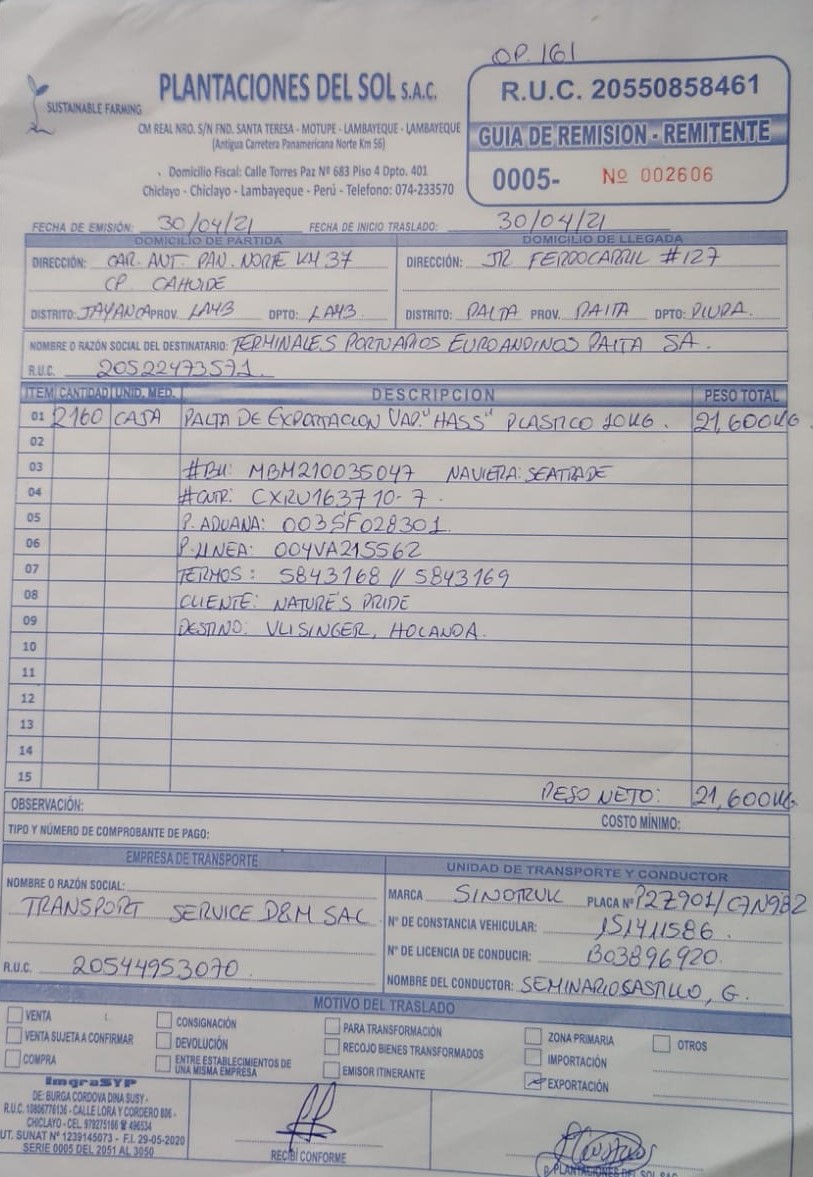 OP. 161
SUSTAINABLE FARMING
PLANTACIONES DEL SOL S.A.C.
CM REAL NRO. S/N FND. SANTA TERESA - MOTUPE - LAMBAYEQUE - LAMBAYEQUE
(Antigua Carretera Panamericana Norte Km 56)
Domicilio Fiscal: Calle Torres Paz Nº 683 Piso 4 Dpto. 401
Chiclayo - Chiclayo - Lambayeque - Perú - Telefono: 074-233570
R.U.C. 20550858461
GUIA DE REMISION - REMITENTE
0005- Nº 002606
FECHA DE EMISIÓN: 30/04/21 FECHA DE INICIO TRASLADO: 30/04/21
DOMICILIO DE PARTIDA DOMICILIO DE LLEGADA
DIRECCIÓN: CAR. ANT. PAN. NORTE KM 37 DIRECCIÓN: JR FERROCARRIL #127
CP. CAHUIDE
DISTRITO: JAYANCA PROV. LAYB DPTO: LAYB. DISTRITO: PAITA PROV. PAITA DPTO: PIURA.
NOMBRE O RAZÓN SOCIAL DEL DESTINATARIO: TERMINALES PORTUARIOS EUROANDINOS PAITA SA.
R.U.C. 20522473571.
ITEM CANTIDAD UNID. MED. DESCRIPCION PESO TOTAL
01 2160 CAJA PALTA DE EXPORTACION VAR. "HASS" PLASTICO 10KG. 21,600KG
02
03 #BK: MBM210035047 NAVIERA: SEATRADE
04 #CNTR: CXRU163710-7.
05 P. ADUANA: 003SF028301.
06 P. LINEA: 004VA215562
07 TERMOS: 5843168 // 5843169
08 CLIENTE: NATURE'S PRIDE
09 DESTINO: VLISINGER, HOLANDA.
10
11
12
13
14
15
PESO NETO: 21,600KG
OBSERVACIÓN:
COSTO MÍNIMO:
TIPO Y NÚMERO DE COMPROBANTE DE PAGO:
EMPRESA DE TRANSPORTE
NOMBRE O RAZÓN SOCIAL:
TRANSPORT SERVICE D&M SAC
R.U.C. 20544953070
UNIDAD DE TRANSPORTE Y CONDUCTOR
MARCA SINOTRUK PLACA Nº P2Z901/C7N982
Nº DE CONSTANCIA VEHICULAR: 151411586.
Nº DE LICENCIA DE CONDUCIR: B03896920.
NOMBRE DEL CONDUCTOR: SEMINARIO CASTILLO, G.
MOTIVO DEL TRASLADO
VENTA
VENTA SUJETA A CONFIRMAR
COMPRA
CONSIGNACIÓN
DEVOLUCIÓN
ENTRE ESTABLECIMIENTOS DE
UNA MISMA EMPRESA
PARA TRANSFORMACIÓN
RECOJO BIENES TRANSFORMADOS
EMISOR ITINERANTE
ZONA PRIMARIA
IMPORTACIÓN
EXPORTACIÓN
OTROS
ImgraSYP
DE: BURGA CORDOVA DINA SUSY -
R.U.C. 10806776136 - CALLE LORA Y CORDERO 806 -
CHICLAYO - CEL. 979275166 ☎ 496534
UT. SUNAT Nº 1239145073 - F.I. 29-05-2020
SERIE 0005 DEL 2051 AL 3050
RECIBÍ CONFORME
P. PLANTACIONES DEL SOL SAC